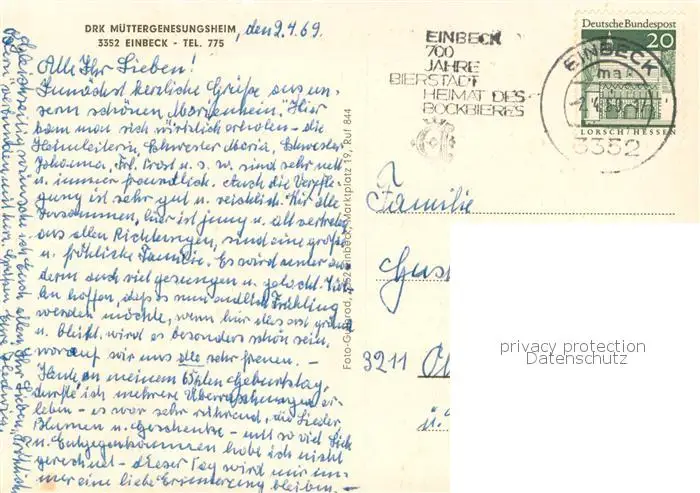 DRK MÜTTERGENESUNGSHEIM, den 2.4.69.
3352 EINBECK - TEL. 775
All Ihr Lieben!
Zunächst herzliche Grüße aus un-
serm schönen Hier
kann man sich wirklich erholen - die
Heimleiterin, Schwester Maria, Schwester
Johanna, Frl. Trost u. s. w. sind sehr nett
u. immer freundlich. Auch die Verpfle-
gung ist sehr gut u. reichlich. Wir alle
zusammen, hier ist jung u. alt vertreten
aus allen Richtungen, sind eine große
u. fröhliche Familie. Es wird unter an-
derm auch viel gesungen u. gelacht. Wir
hoffen, daß es nun endlich Frühling
werden möchte, wenn hier alles erst grünt
u. blüht, wird es besonders schön sein,
worauf wir uns alle sehr freuen. -
Heute an meinem 65ten Geburtstag,
durfte ich mehrere Überraschungen er-
leben - es war sehr rührend, die Lieder,
Blumen u. Geschenke - mit so viel
u. Entgegenkommen habe ich nicht
gerechnet - dieser Tag wird mir im-
mer eine liebe Erinnerung bleiben. -
Gleichzeitig wünsche ich Euch allen, Ihr Lieben,
verbunden mit herz. Grüßen Eure Hedwig.
Foto-Gebrod, 3352 Einbeck, Marktplatz 19, Ruf 844
EINBECK
700
JAHRE
BIERSTADT
HEIMAT DES
BOCKBIERES
Deutsche Bundespost
20
LORSCH/HESSEN
EINBECK
3352
Familie
Gus
3211
privacy protection
Datenschutz